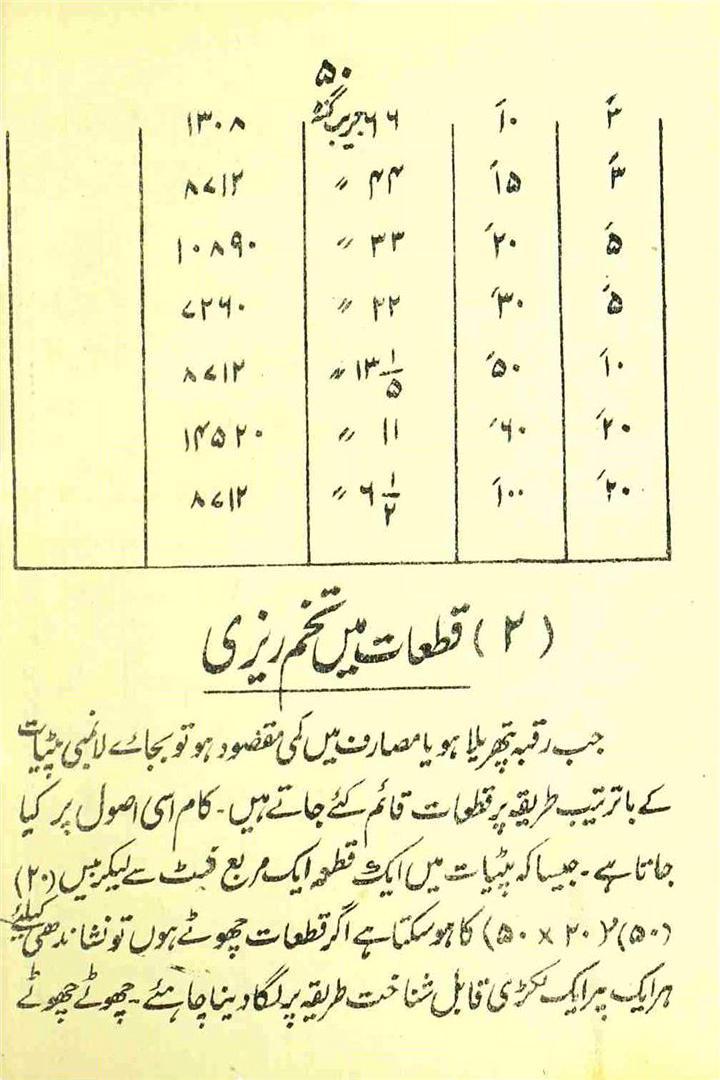 ۵۰
۳َ ۱۰َ ۶۶ جریب گنٹہ ۱۳۰۸
۳َ ۱۵َ ۴۴ ״ ۸۷۱۲
۵َ ۲۰َ ۳۳ ״ ۱۰۸۹۰
۵َ ۳۰َ ۲۲ ״ ۷۲۶۰
۱۰َ ۵۰َ ۱۳ ۱/۵ ״ ۸۷۱۲
۲۰َ ۶۰َ ۱۱ ״ ۱۴۵۲۰
۲۰َ ۱۰۰َ ۶ ۱/۲ ״ ۸۷۱۲
(۲) قطعات میں تخم ریزی
جب رقبہ پتھریلا ہو یا مصارف میں کمی مقصود ہو تو بجاے لانمبی پٹیات
کے باترتیب طریقہ پر قطعات قائم کئے جاتے ہیں۔ کام اسی اصول پر کیا
جاتا ہے۔ جیسا کہ پٹیات میں ایک قطعہ ایک مربع فیٹ سے لیکر بیس (۲۰)
(۵۰)۲(۲۰ × ۵۰) کا ہو سکتا ہے اگر قطعات چھوٹے ہوں تو نشاندھی کیلئے
ہر ایک پر ایک لکڑی قابل شناخت طریقہ پر لگا دینا چاہئے۔ چھوٹے چھوٹے